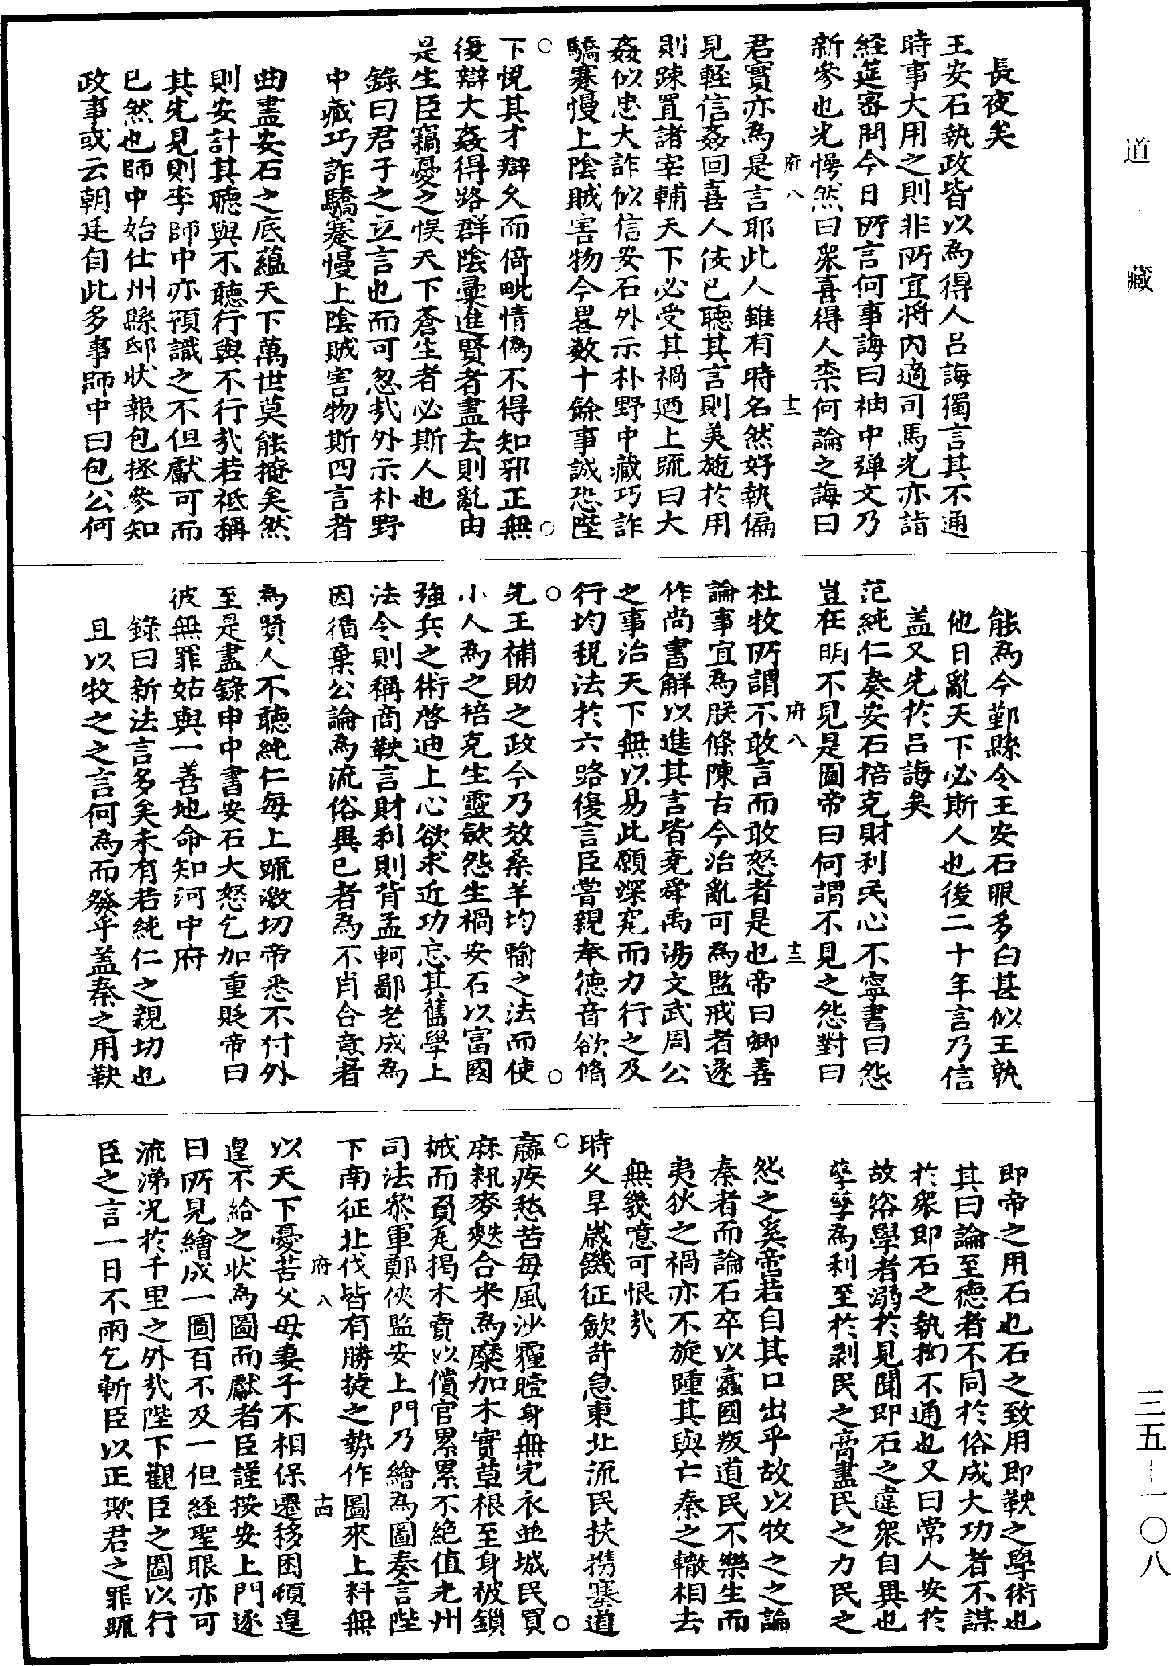 道
藏
三五—一〇八
長夜矣
王安石執政皆以為得人呂誨獨言其不通
時事大用之則非所宜將內適司馬光亦詣
經筵密問今日所言何事誨曰袖中彈文乃
新參也光愕然曰衆喜得人柰何論之誨曰
府八
十二
君實亦為是言耶此人雖有時名然好執偏
見輕信姦回喜人佞己聽其言則美施於用
則踈置諸宰輔天下必受其禍廼上疏曰大
姦似忠大詐似信安石外示朴野中藏巧詐
驕蹇慢上陰賊害物今畧数十餘事誠恐陛
下悅其才辯久而倚毗情偽不得知邪正無
復辯大姦得路群陰彙進賢者盡去則亂由
是生臣竊憂之悞天下蒼生者必斯人也
錄曰君子之立言也而可忽㢤外示朴野
中藏巧詐驕蹇慢上陰賊害物斯四言者
曲盡安石之底蘊天下萬世莫能掩矣然
則安計其聽與不聽行與不行㢤若祗稱
其先見則李師中亦預識之不但獻可而
已然也師中始仕州縣邸狀報包拯參知
政事或云朝廷自此多事師中曰包公何
能為今鄞縣令王安石眼多白甚似王敦
他日亂天下必斯人也後二十年言乃信
盖又先於呂誨矣
范純仁奏安石掊克財利民心不寧書曰怨
豈在明不見是圖帝曰何謂不見之怨對曰
府八
十三
杜牧所謂不敢言而敢怒者是也帝曰卿善
論事宜為朕條陳古今治亂可為監戒者遂
作尚書解以進其言皆堯舜禹湯文武周公
之事治天下無以易此願深究而力行之及
行均稅法於六路復言臣嘗親奉德音欲脩
先王補助之政今乃效桑羊均輸之法而使
小人為之掊克生靈歛怨生禍安石以富國
強兵之術啓迪上心欲求近功忘其舊學上
法令則稱商鞅言財利則背孟軻鄙老成為
因循棄公論為流俗異己者為不肖合意者
為賢人不聽純仁每上疏激切帝悉不付外
至是盡錄申中書安石大怒乞加重貶帝曰
彼無罪姑與一善地命知河中府
錄曰新法言多矣未有若純仁之親切也
且以牧之之言何為而發乎盖秦之用鞅
即帝之用石也石之致用即鞅之學術也
其曰論至德者不同於俗成大功者不謀
於衆即石之執拗不通也又曰常人安於
故俗學者溺於見聞即石之違衆自異也
孳孳為利至於剥民之膏盡民之力民之
怨之奚啻若自其口出乎故以牧之之論
秦者而論石卒以蠧國叛道民不樂生而
夷狄之禍亦不旋踵其與亡秦之轍相去
無幾噫可恨㢤
時久旱歲饑征歛苛急東北流民扶携塞道
羸疾愁苦每風沙霾曀身無完衣並城民買
麻籸麥麩合米為糜加木實草根至身被鎖
械而負瓦揭木賣以償官累累不絕值光州
司法參軍鄭俠監安上門乃繪為圖奏言陛
下南征北伐皆有勝捷之勢作圖來上料無
府八
十四
以天下憂苦父母妻子不相保遷移困頓遑
遑不給之狀為圖而獻者臣謹按安上門逐
日所見繪成一圖百不及一但經聖眼亦可
流涕况於千里之外㢤陛下觀臣之圖以行
臣之言一日不雨乞斬臣以正欺君之罪疏